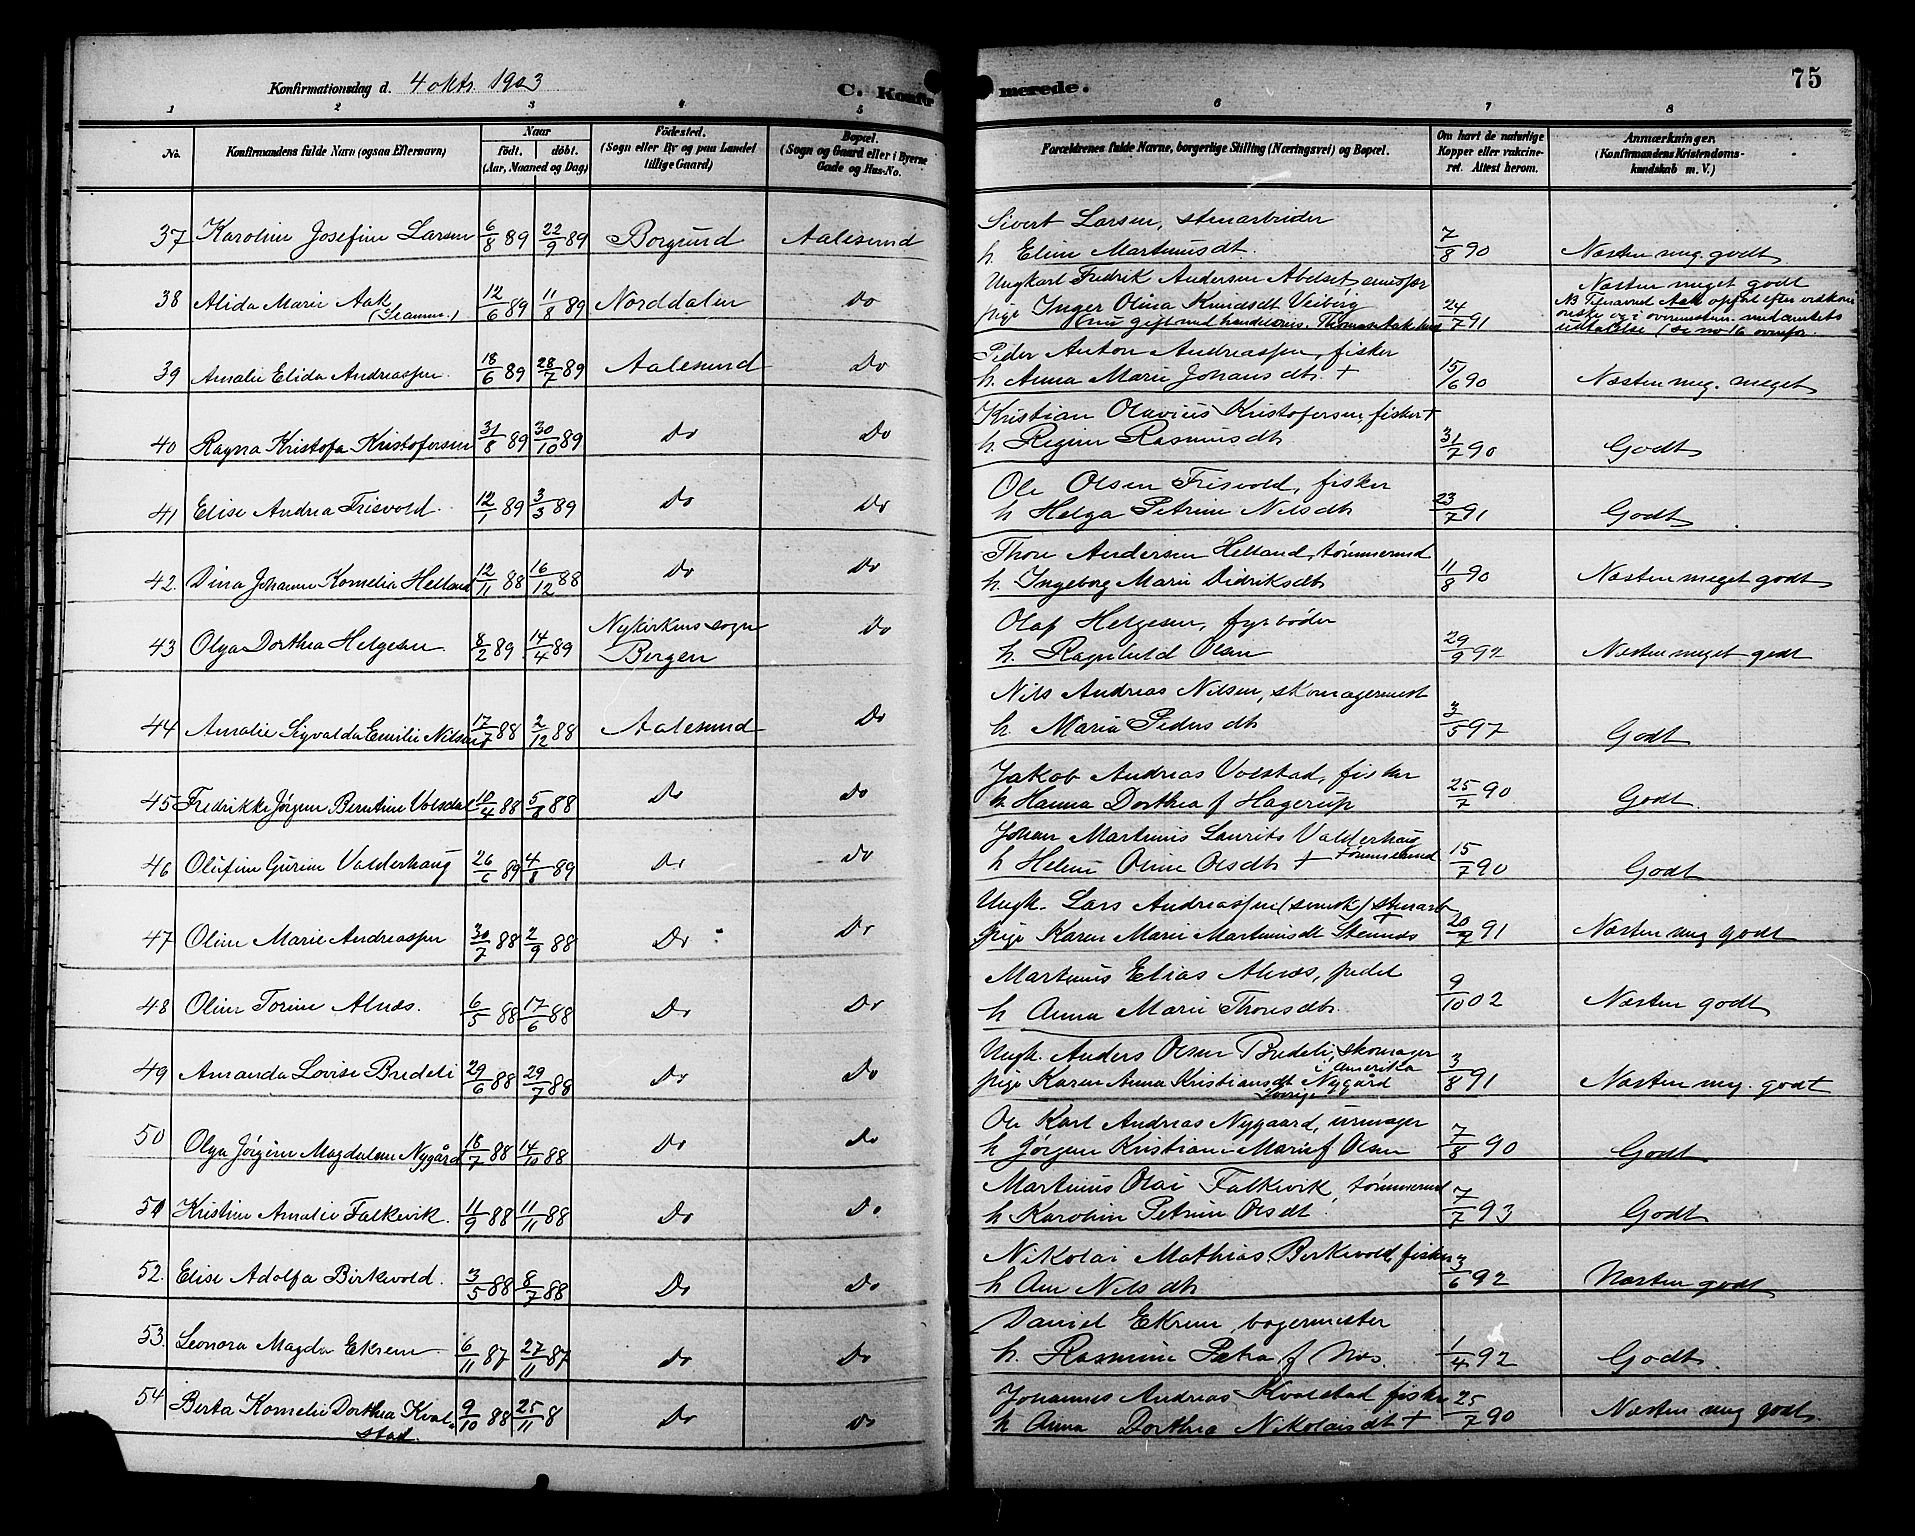 Konfirmationsdag d. 4 okts. 1903
C. Konfir merede. 75
1 2 3 4 5 6 7 8
No. Konfirmandens fulde Navn (ogsaa Efternavn) Naar født, døbt. (Aar, Maaned og Dag) Fødested. (Sogn eller By og paa Landet tillige Gaard) Bopæl. (Sogn og Gaard eller i Byerne Gade og Hus-No. Forældrenes fulde Navne, borgerlige Stilling (Næringsvei) og Bopæl. Om havt de naturlige Kopper eller vakcineret. Attest herom. Anmærkninger, (Konfirmandens Kristendomskundskab m. V.)
37 Karoline Josefine Larsen 6/8 89 22/9 89 Borgund Aalesund Sivert Larsen, stenarbeider
h. Eline Martinusdt. 7/8 90 Næsten meg. godt
38 Alida Marie Aak 12/6 89 11/8 89 Norddalen Do Ungkarl Fredrik Andersen Abelset
pige Inger Olina Knudsdt Veiberg 24/7 91 Næsten meget godt
39 Amalie Elida Andreassen 18/6 89 28/7 89 Aalesund Do Peder Anton Andreassen, fisker
h. Anna Marie Johansdtr. + 15/6 90 Næsten meg. meget
40 Ragna Kristofa Kristofersen 31/8 89 30/10 89 Do Do Kristian Olavius Kristofersen, fisker +
h. Regine Rasmusdtr 31/7 90 Godt
41 Elise Andrea Frisvold. 12/1 89 3/3 89 Do Do Ole Olsen Frisvold, fisker
h Helga Petrine Nilsdtr 23/7 91 Godt
42. Dina Johanne Kornelia Helland 12/11 88 16/12 88 Do Do Thore Andersen Helland, tømmermd
h. Ingeborg Marie Didriksdtr 11/8 90 Næsten meget godt
43 Olga Dorthea Helgesen 8/2 89 14/4 89 Nykirkens sogn Bergen Do Olaf Helgesen, fyrbøder
h. Ragnhild Olsen 29/9 92 Næsten meget godt
44 Amalie Sigvalda Emilie Nilsen 17/7 88 2/12 88 Aalesund Do Nils Andreas Nilsen, skomagermest
h. Maria Pedersdtr 3/5 97 Godt
45 Fredrikke Jørgine Berntine Volsdal 10/4 88 5/8 88 Do Do Jakob Andreas Volstad, fisker
h. Hanna Dorthea f Hagerup 25/7 90 Godt
46 Olufine Gurine Valderhaug 26/6 89 4/8 89 Do Do Johan Martinus Laurits Valderhaug
h Helene Oline Olsdtr + tømmermd 15/7 90 Godt
47 Oline Marie Andreassen 30/7 88 2/9 88 Do Do Ungk. Lars Andreassen (svensk) stenarb
pige Karen Marie Martinusdt Stennes 20/7 91 Næsten meg godt
48 Oline Torine Alnæs. 6/5 88 17/6 88 Do Do Martinus Elias Alnæs, pedel
h Anna Marie Thoresdtr. 9/10 02 Næsten godt
49 Amanda Lovise Bredeli 29/6 88 29/7 88 Do Do Ungk. Anders Olsen Bredeli, skomager
i Amerika
pige Karen Anna Kristiansdt Nygård 3/8 91 Næsten meg. godt
50 Olga Jørgine Magdalene Nygård 18/7 88 14/10 88 Do Do Ole Karl Andreas Nygaard, urmager
h Jørgine Kristiane Marie f Olsen 7/8 90 Godt
51 Kristine Amalie Falkevik. 11/9 88 11/11 88 Do Do Martinus Olai Falkevik, tømmermd
h Karoline Petrine Olsdt. 7/7 93 Godt
52. Elise Adolfa Birkevold. 3/5 88 8/7 88 Do Do Nikolai Mathias Berkevold, fisker
h Ane Nilsdtr 3/6 92 Næsten godt
53. Leonora Magda Ekrem 6/11 87 27/11 87 Do Do Daniel Ekrem, bagermester
h. Rasmine Petra f Næs. 1/4 92 Godt.
54 Berta Kornelie Dorthea Kvalstad. 9/10 88 25/11 8 Do Do Johannes Andreas Kvalstad fisker
h Anna Dorthea Nikolaisdt + 25/7 90 Næsten meg godt.